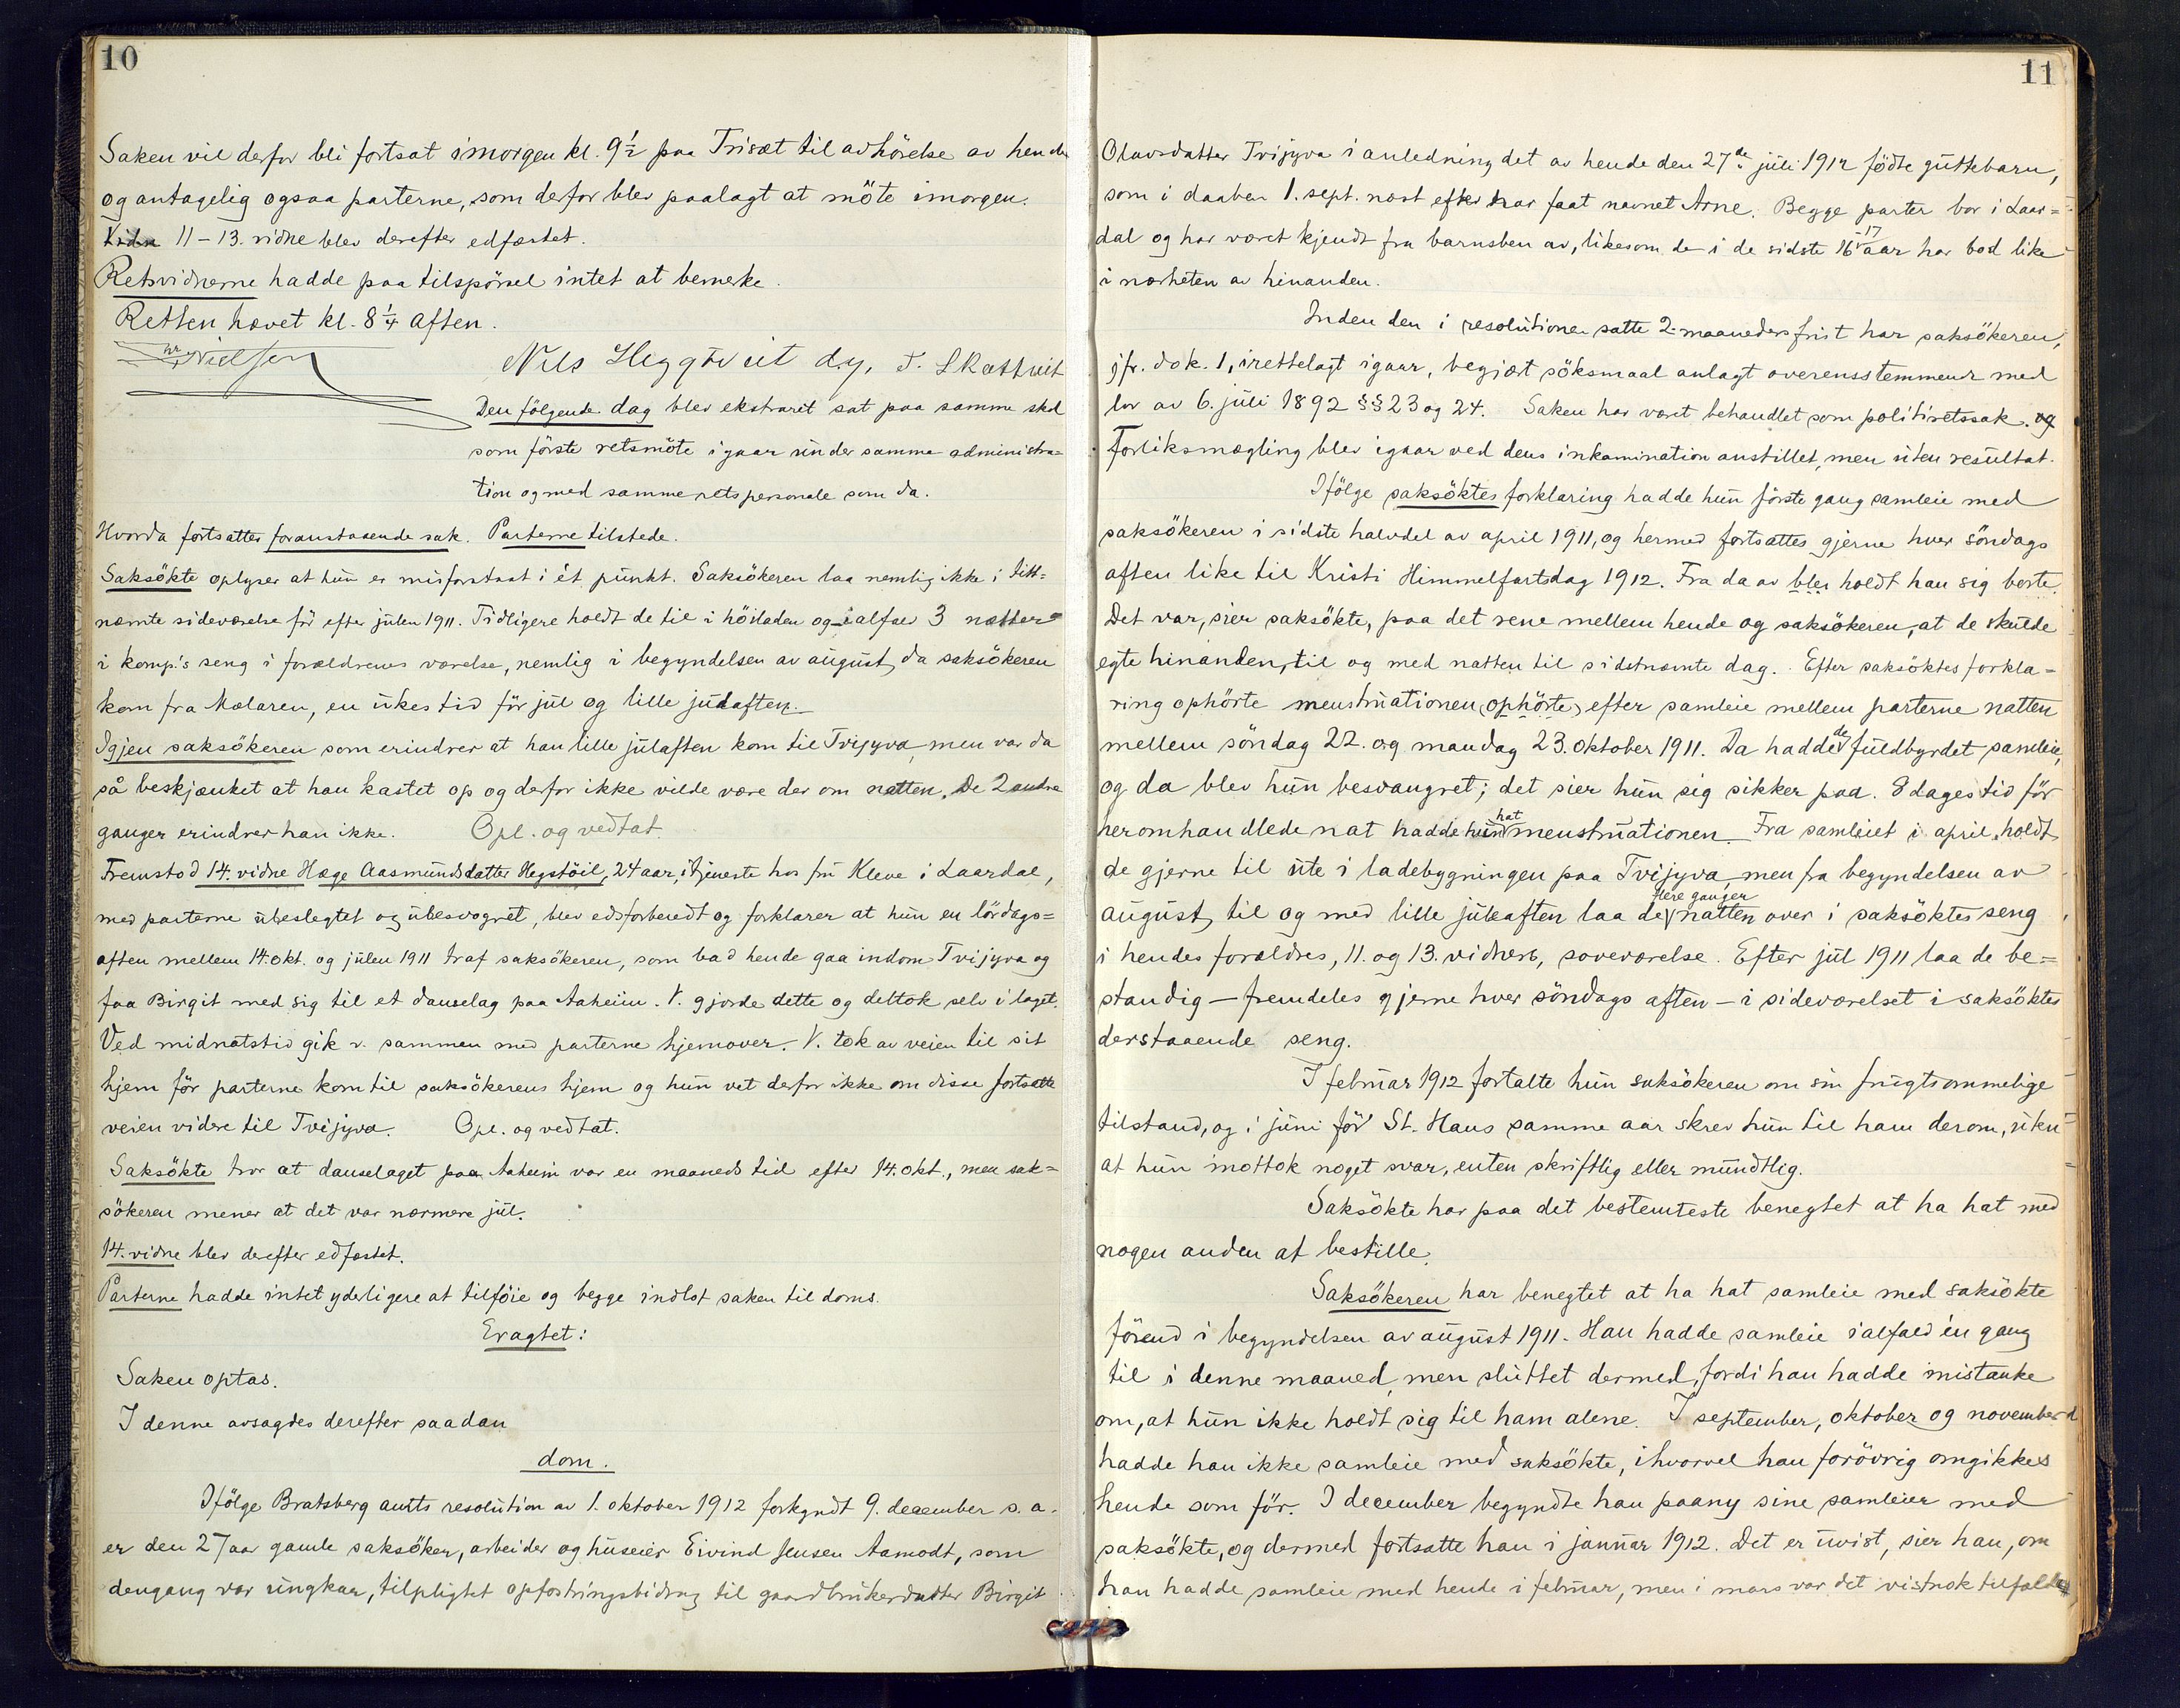 10
Saken vil derfor bli fortsat imorgen kl. 9½ paa Trisæt til avhörelse av hende
og antagelig ogsaa parterne, som derfor blev paalagt at möte imorgen.
11 – 13. vidne blev derefter edfæstet.
Retsvidnerne hadde paa tilspörsel intet at bemerke.
Retten hævet kl. 8¼ aften.
Nielsen
Nils Heggtveit d.y. T. Skattveit
Den fölgende dag blev ekstraret sat paa samme sted
som förste retsmöte igaar under samme administra=
tion og med samme retspersonale som da.
Hvorda fortsattes foranstaaende sak. Parterne tilstede.
Saksökte oplyser at hun er misforstaat i ét punkt. Saksökeren laa nemlig ikke i titt=
nævnte sideværelse för efter julen 1911. Tidligere holdt de til i höiladen og ialfald 3 nætter
i komp.'s seng i forældrenes værelse, nemlig i begyndelsen av august, da saksökeren
kom fra Mælaren, en ukes tid för jul og lille julaften.
Igjen saksökeren som erindrer at han lille julaften kom til Tvijyva, men var da
så beskjænket at han kastet op og derfor ikke vilde være der om natten. De 2 andre
ganger erindrer han ikke. Opl. og vedtat.
Fremstod 14. vidne Hæge Aasmundsdatter Hegstöil, 24 aar, i tjeneste hos fru Kleve i Laardal,
med parterne ubeslegtet og ubesvogret, blev edsforberedt og forklarer at hun en lördags=
aften mellem 14. okt. og julen 1911 traf saksökeren, som bad hende gaa indom Tvijyva og
faa Birgit med sig til et danselag paa Aaheim. V. gjorde dette og deltok selv i laget.
Ved midnatstid gik v. sammen med parterne hjemover. V. tok av veien til sit
hjem för parterne kom til saksökerens hjem og hun vet derfor ikke om disse fortsatte
veien videre til Tvijyva. Opl. og vedtat.
Saksökte tror at danselaget paa Aaheim var en maaneds tid efter 14. okt., men sak=
sökeren mener at det var nærmere jul.
14. vidne blev derefter edfæstet.
Parterne hadde intet yderligere at tilföie og begge indlot saken til doms.
Eragtet:
Saken optas.
I denne avsagdes derefter saadan
dom.
Ifölge Bratsberg amts resolution av 1. oktober 1912 forkyndt 9. december s. a.
er den 27 aar gamle saksöker, arbeider og huseier Eivind Jensen Aamodt, som
dengang var ungkar, tilpligtet opfostringsbidrag til gaardbrukerdatter Birgit
11
Olavsdatter Tvijyva i anledning det av hende den 27de juli 1912 födte guttebarn,
som i daaben 1. sept. næst efter har faat navnet Arne. Begge parter bor i Laar=
dal og har været kjendt fra barnsben av, likesom de i de sidste 16-17 aar har bod like
i nærheten av hinanden.
Inden den i resolutionen satte 2-maanedersfrist har saksökeren,
jfr. dok. 1, irettelagt igaar, begjært söksmaal anlagt overensstemmende med
lov av 6. juli 1892 §§ 23 og 24. Saken har været behandlet som politiretssak. og
Forliksmægling blev igaar ved dens inkamination anstillet, men uten resultat.
Ifölge saksöktes forklaring hadde hun förste gang samleie med
saksökeren i sidste halvdel av april 1911, og hermed fortsattes gjerne hver söndags
aften like til Kristi Himmelfartsdag 1912. Fra da av blev holdt han sig borte.
Det var, sier saksökte, paa det rene mellem hende og saksökeren, at de skulde
egte hinanden, til og med natten til sidstnævnte dag. Efter saksöktes forkla=
ring ophörte menstruationen (ophörte) efter samleie mellem parterne natten
mellem söndag 22. og mandag 23. oktober 1911. Da hadde de fuldbyrdet samleie,
og da blev hun besvangret; det sier hun sig sikker paa. 8 dages tid för
heromhandlede nat hadde hun hat menstruationen. Fra samleiet i april holdt
de gjerne til ute i ladebygningen paa Tvijyva, men fra begyndelsen av
august til og med lille juleaften laa de flere ganger natten over i saksöktes seng
i hendes forældres, 11. og 13. vidners, soveværelse. Efter jul 1911 laa de be=
standig – fremdeles gjerne hver söndags aften – i sideværelset i saksöktes
derstaaende seng.
I februar 1912 fortalte hun saksökeren om sin frugtsommelige
tilstand, og i juni för St. Hans samme aar skrev hun til ham derom, uten
at hun mottok noget svar, enten skriftlig eller mundtlig.
Saksökte har paa det bestemteste benegtet at ha hat med
nogen anden at bestille.
Saksökeren har benegtet at ha hat samleie med saksökte
förend i begyndelsen av august 1911. Han hadde samleie ialfald én gang
til i denne maaned, men sluttet dermed, fordi han hadde mistanke
om, at hun ikke holdt sig til ham alene. I september, oktober og november
hadde han ikke samleie med saksökte, ihvorvel han forövrig omgikkes
hende som för. I december begyndte han paany sine samleier med
saksökte, og dermed fortsatte han i januar 1912. Det er uvist, sier han, om
han hadde samleie med hende i februar, men i mars var det vistnok tilfældet